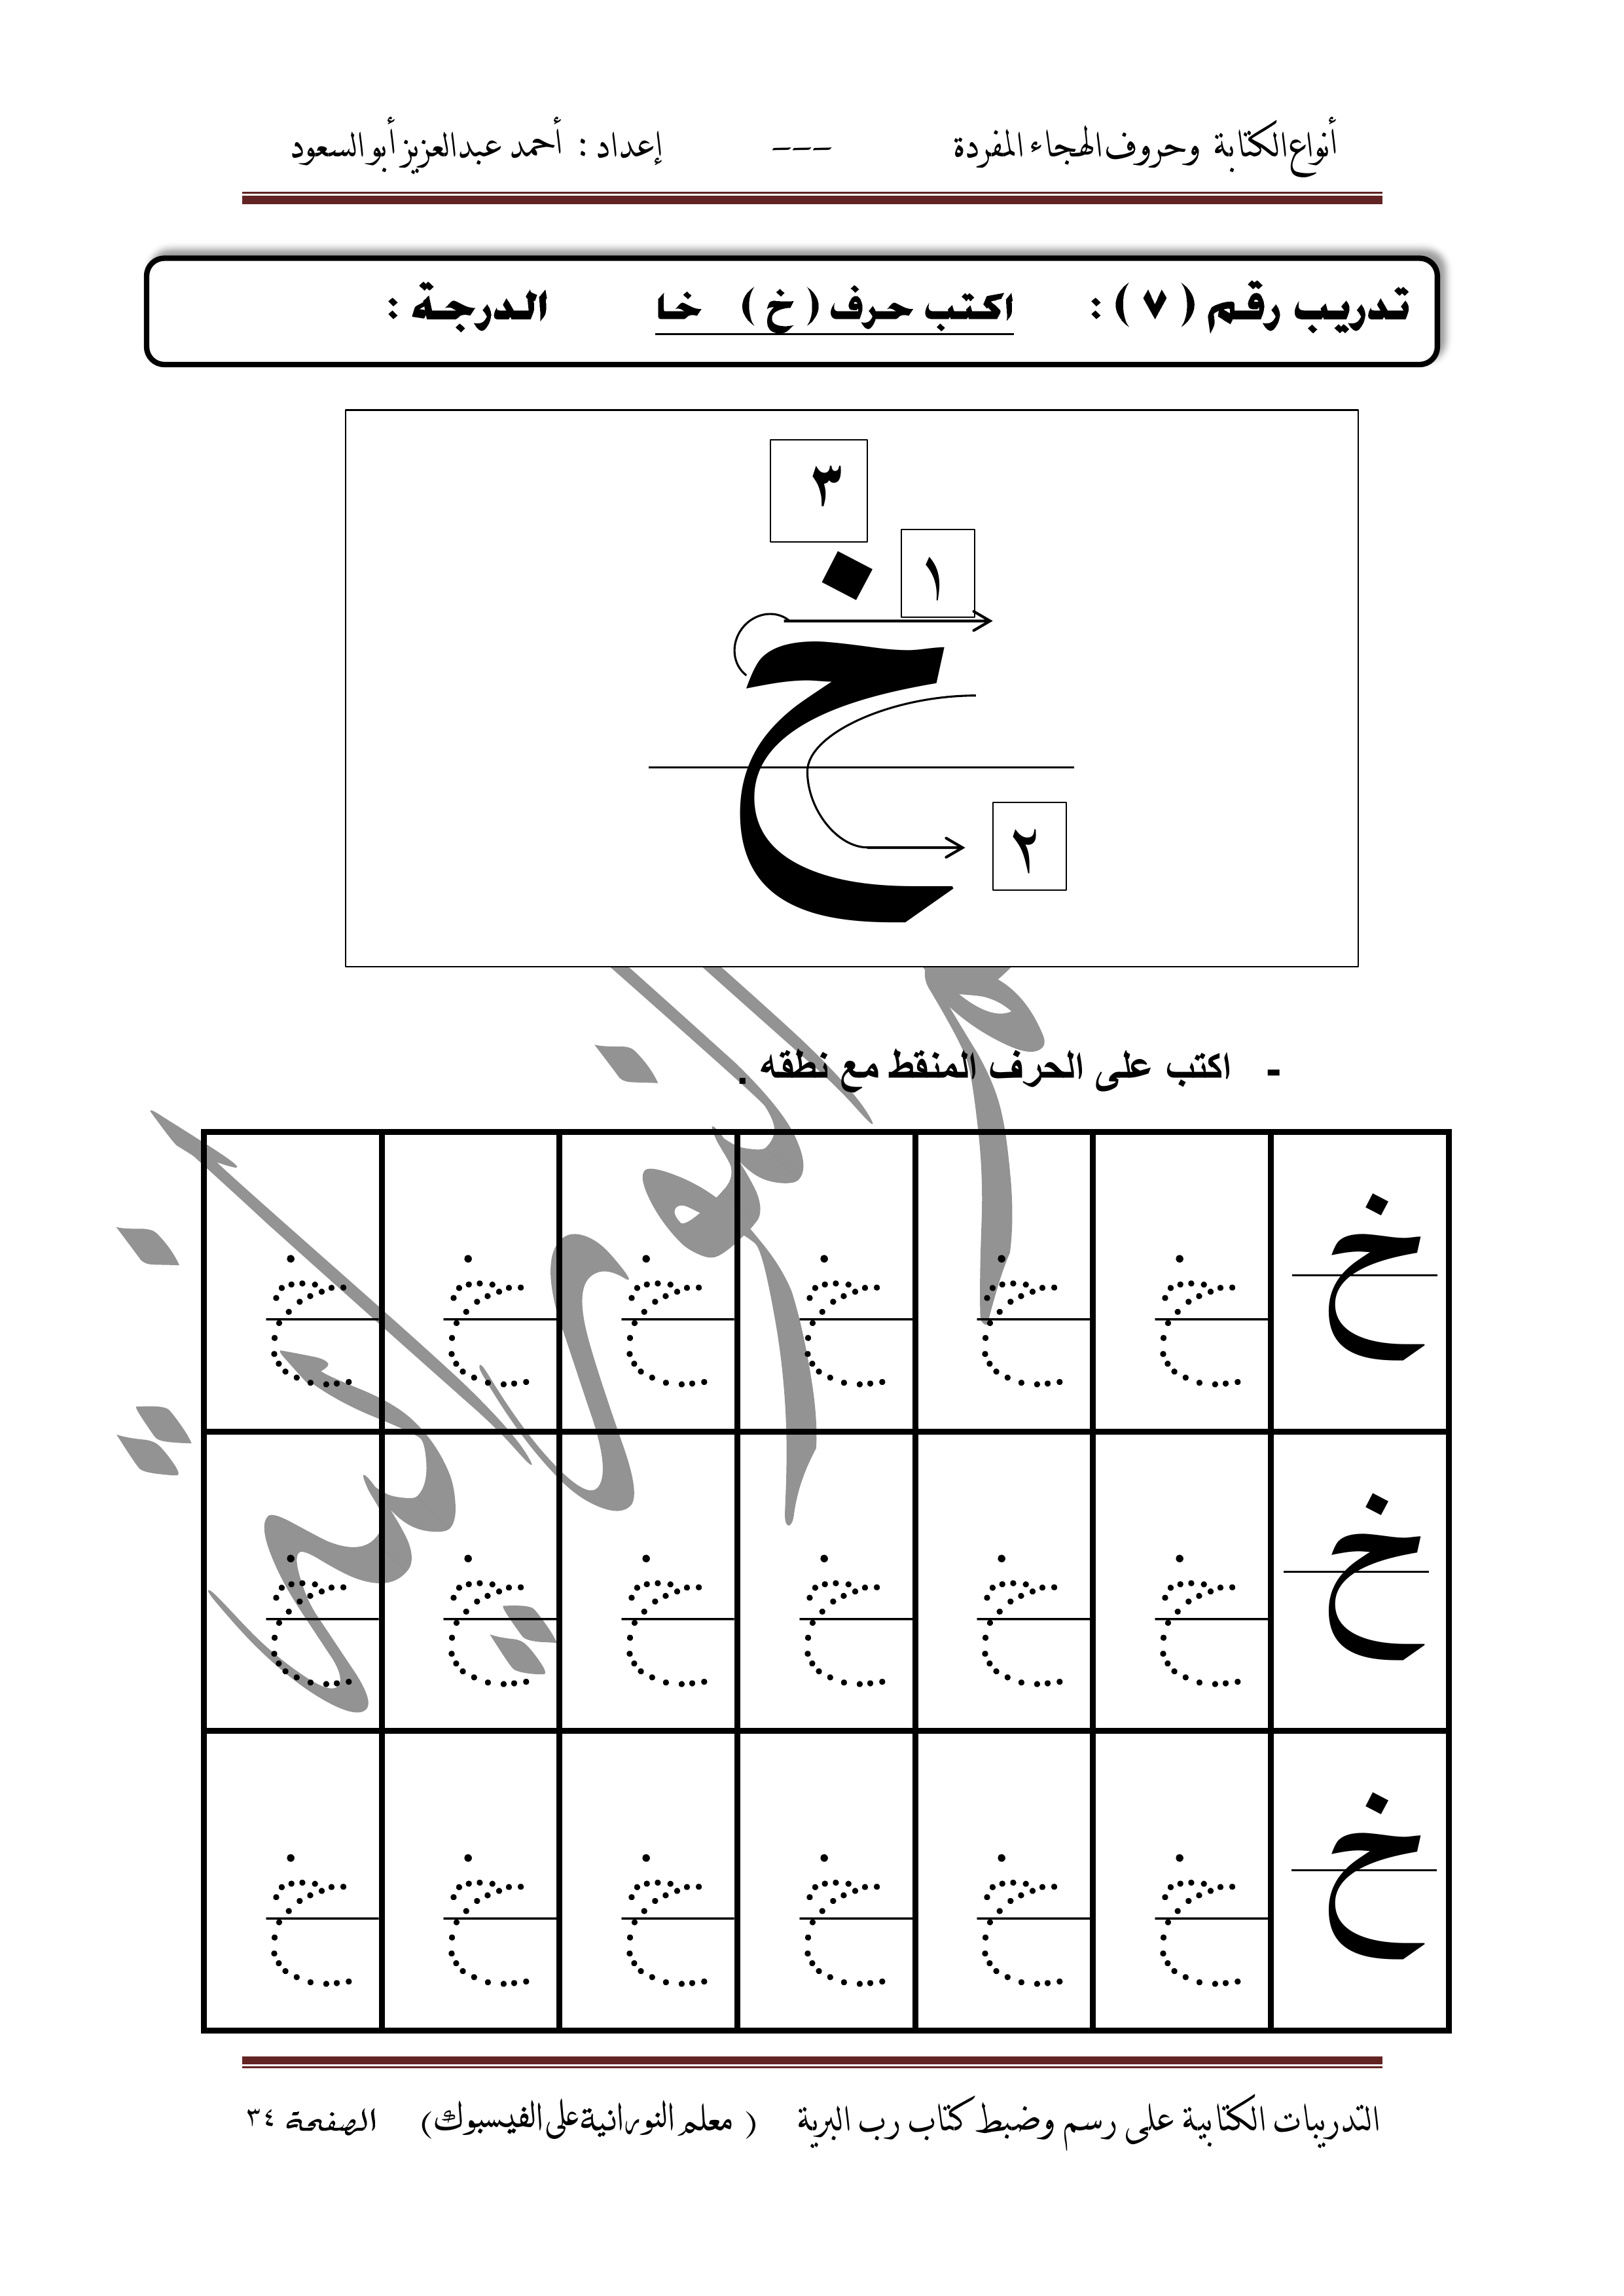 أنواع الكتابة وحروف الهجاء المفردة --- إعداد : أحمد عبدالعزيز أبو السعود
تدريب رقم ( ٧ ) : اكتب حرف ( خ ) خا الدرجة :
٣
١
خ
٢
- اكتب على الحرف المنقط مع نطقه .
خ خ خ خ خ خ خ
خ خ خ خ خ خ خ
خ خ خ خ خ خ خ
التدريبات الكتابية على رسم وضبط كتاب رب البرية ( معلم النورانية على الفيسبوك) الصفحة ٣٤